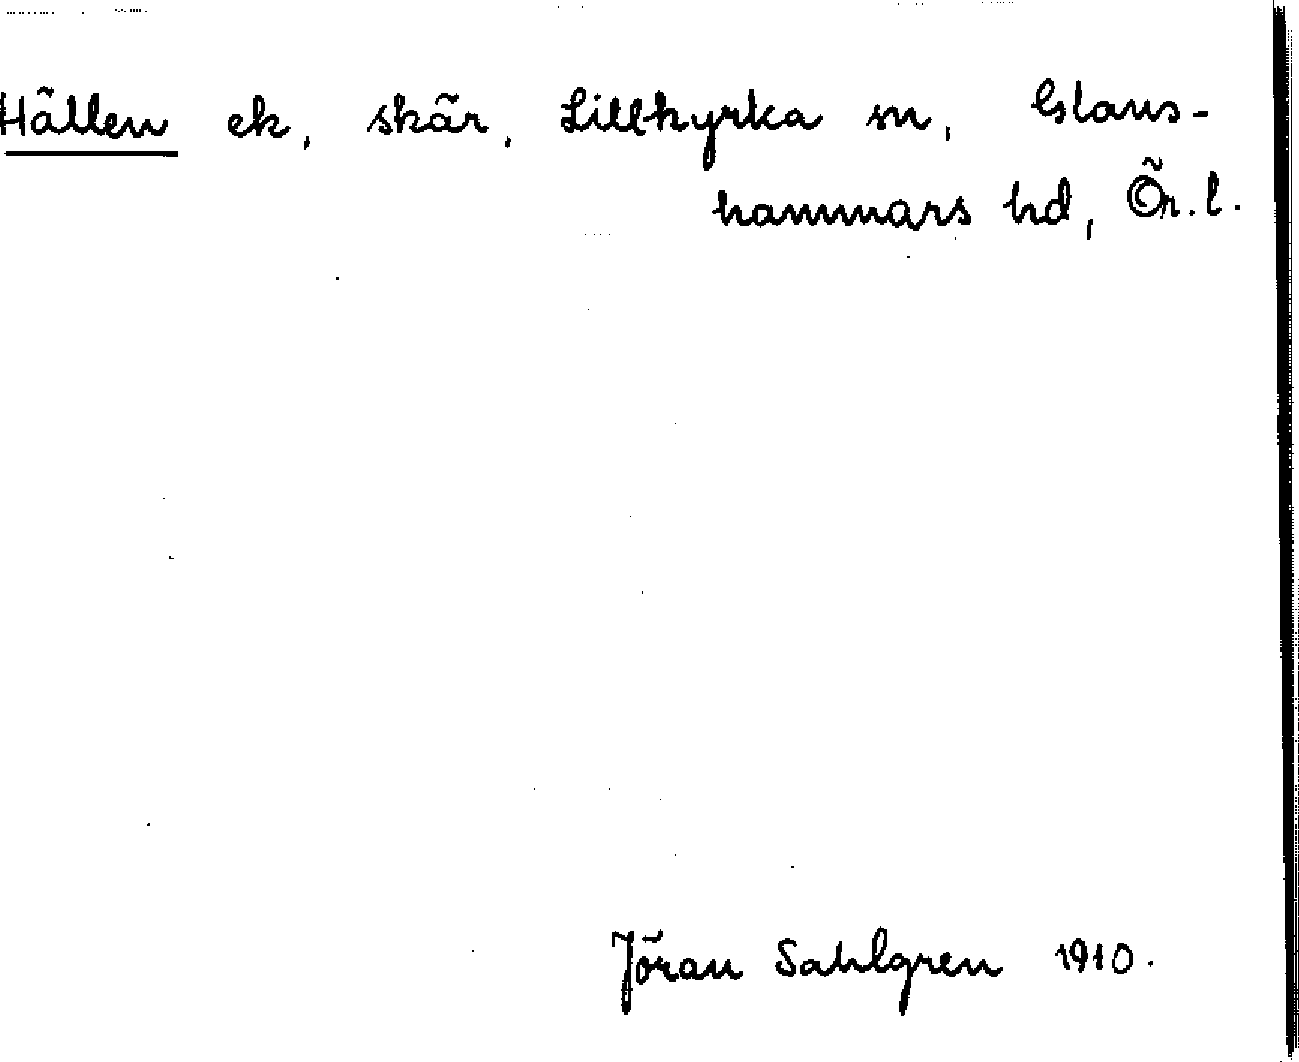 Hällen ek, skär, Lillkyrka sn, Glans-
hammars hd, Ör.l.
Jöran Sahlgren 1910.